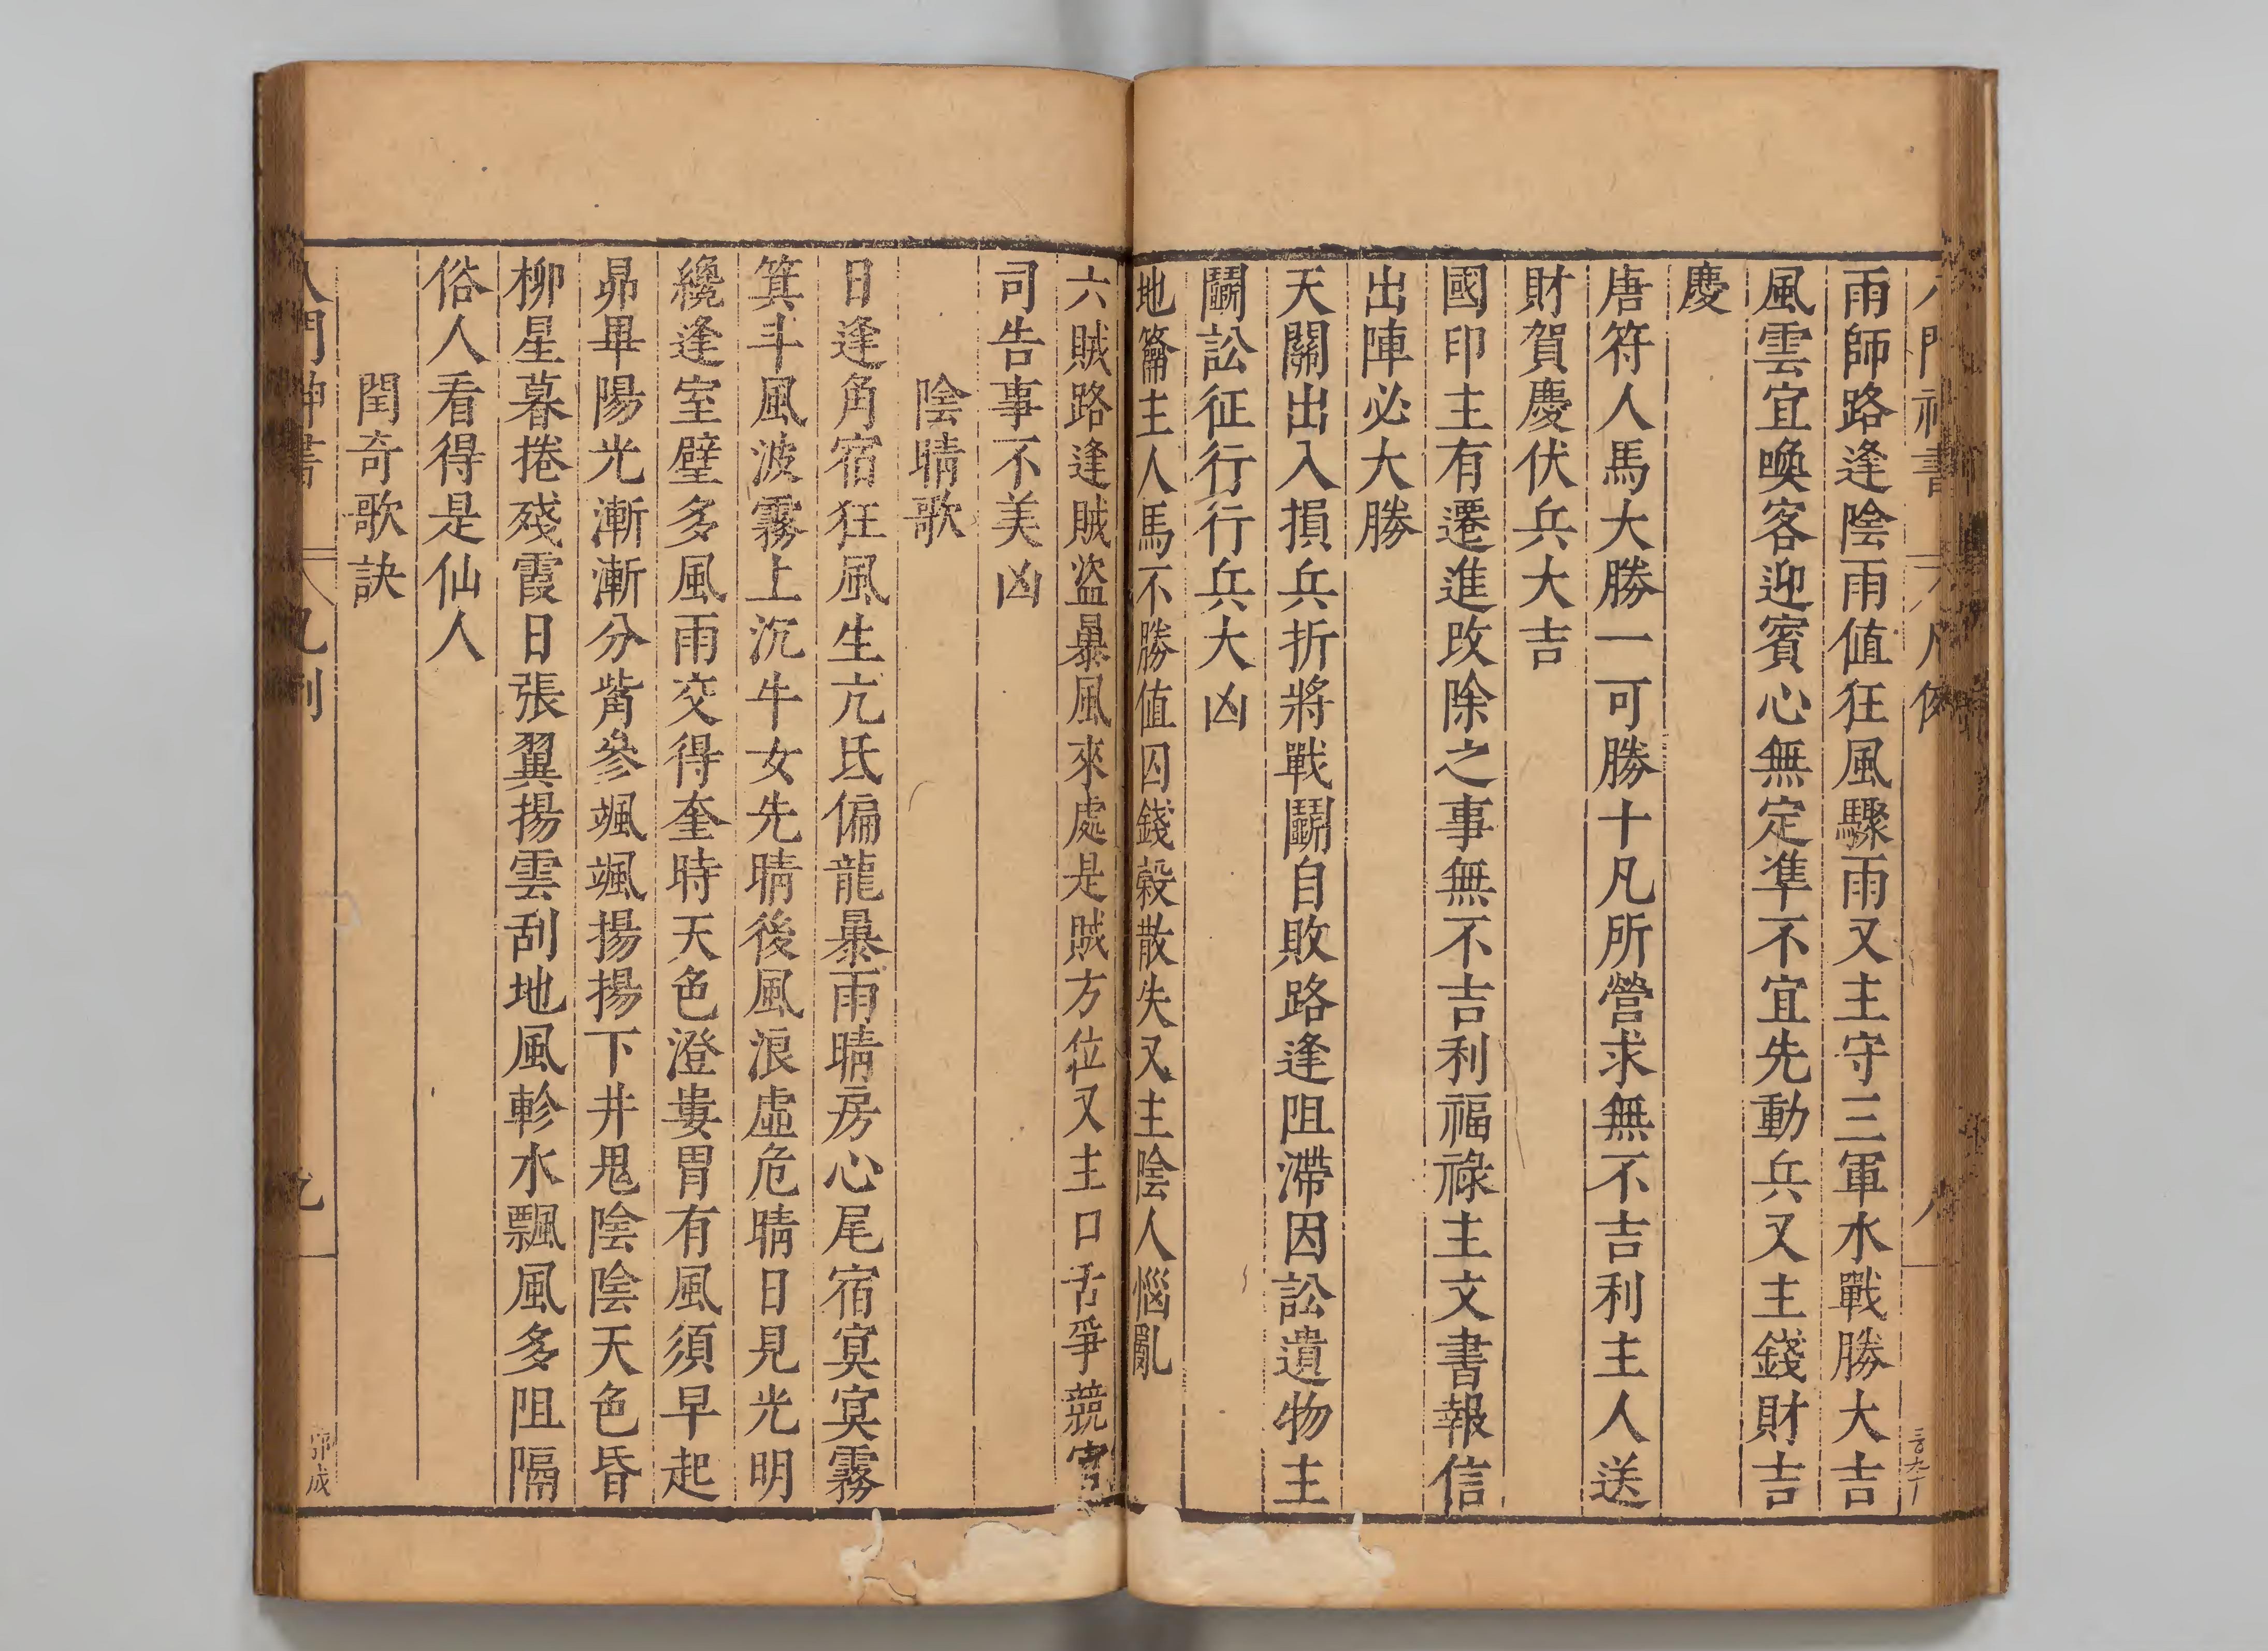 雨師路逢陰雨值狂風驟雨又主守三軍水戰勝大吉
風雲宜喚客迎賓心無定準不宜先動兵又主錢財吉
慶
唐符人馬大勝一可勝十凡所營求無不吉利主人送
財賀慶伏兵大吉
國印主有遷進改除之事無不吉利福祿主文書報信
出陣必大勝
天關出入損兵折將戰鬭自敗路逢阻滯因訟遺物主
鬭訟征行行兵大凶
地籥主人馬不勝值囚錢穀散失又主陰人惱亂
六賊路逢賊盜暴風來處是賊方位又主口舌爭競官
司告事不美凶
陰晴歌
日逢角宿狂風生亢氐偏龍暴雨晴房心尾宿寞寞霧
箕斗風波霧上沉牛女先晴後風浪虛危晴日見光明
纔逢室壁多風雨交得奎時天色澄婁胃有風須早起
昴畢陽光漸漸分觜參颯颯揚揚下井鬼陰陰天色昏
柳星暮捲殘霞日張翼揚雲刮地風軫水飄風多阻隔
俗人看得是仙人
閏奇歌訣